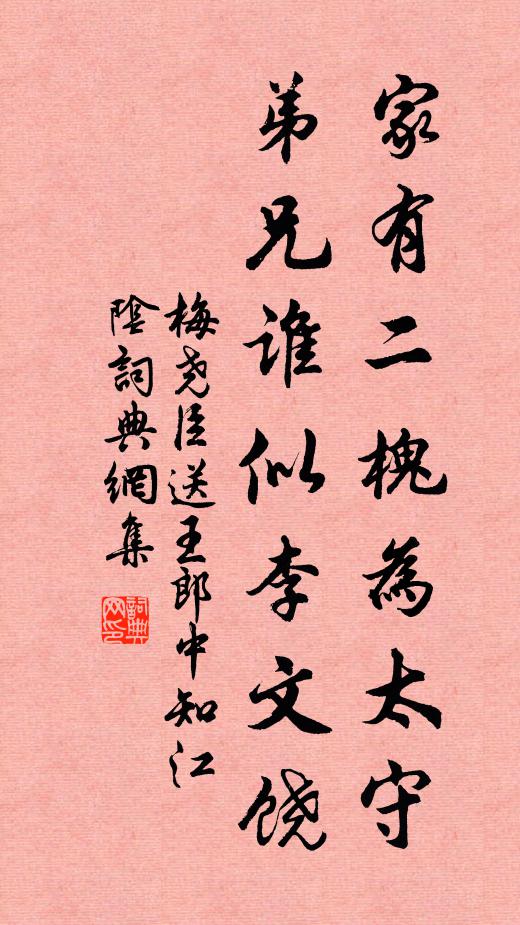 家有二槐為太守
弟兄誰似李文饒
梅堯臣送王郎中知江
陰詞典網集
詞典
网印